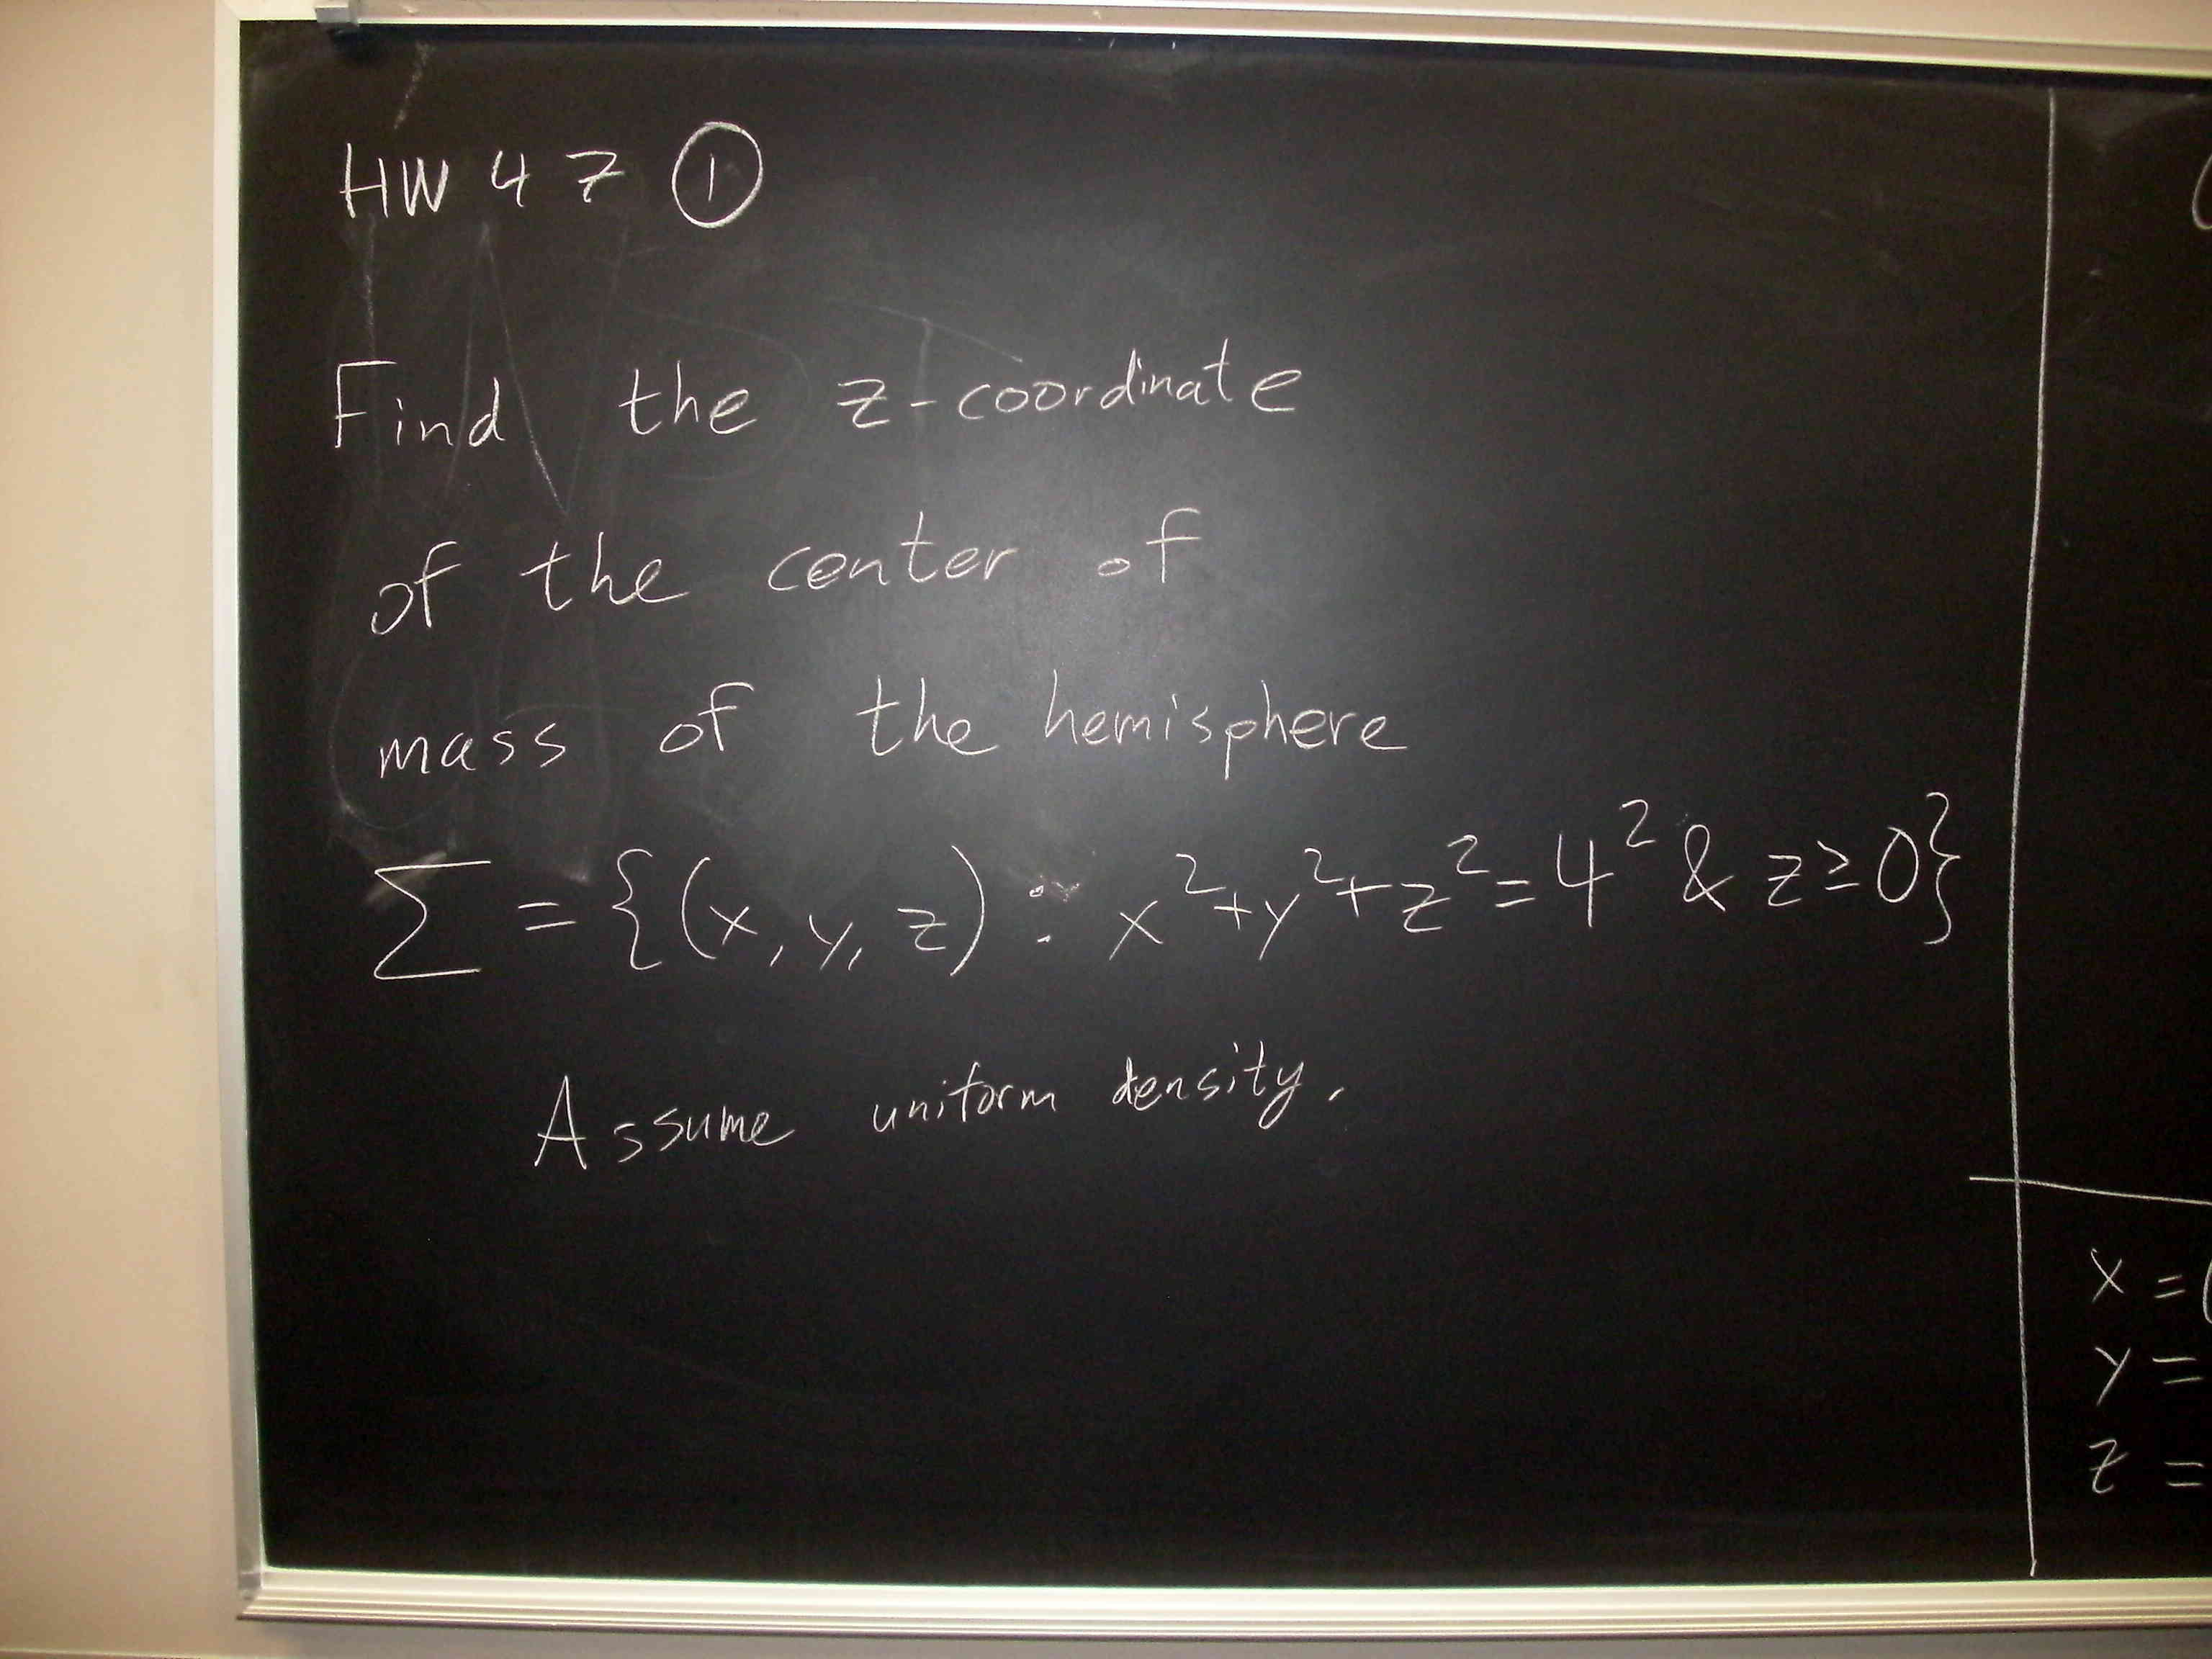 HW 47 ①
Find the z-coordinate
of the center of
mass of the hemisphere
Σ = {(x, y, z) : x²+y²+z²=4² & z≥0}
Assume uniform density.
x =
y =
z =